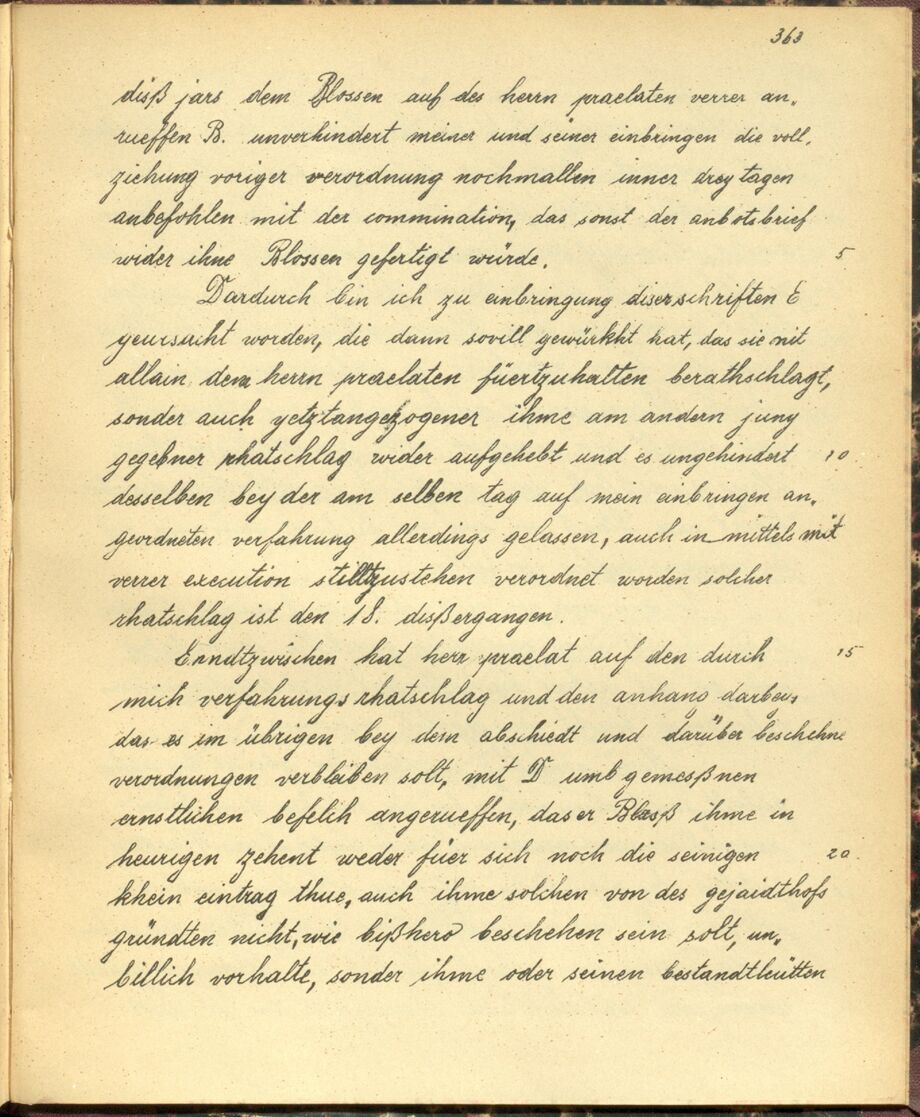 363
disß jars dem Blossen auf des herrn praelaten verrer an„
rueffen B. unverhindert meiner und seiner einbringen die voll„
ziehung voriger verordnung nochmallen inner drey tagen
anbefohlen mit der commination, das sonst der anbotsbrief
wider ihne Blossen gefertigt würde. 5
Dardurch bin ich zu einbringung diser schriften E
geursacht worden, die dann sovill gewürkht hat, das sie nit
allain dem herrn praelaten füertzuhalten berathschlagt,
sonder auch yetztangezogener ihme am andern juny
gegebner rhatschlag wider aufgehebt und es ungehindert 10
desselben bey der am selben tag auf mein einbringen an„
geordneten verfahrung allerdings gelassen, auch in mittels mit
verrer execution stilltzustehen verordnet worden solcher
rhatschlag ist den 18. disß ergangen.
Enndtzwischen hat herr praelat auf den durch 15
mich verfahrungs rhatschlag und den anhang darbey,
das es im übrigen bey dem abschiedt und darüber beschehne
verordnungen verbleiben solt, mit D umb gemesßnen
ernstlichen befelch angerueffen, das er Blosß ihme in
heurigen zehent weder füer sich noch die seinigen 20.
khein eintrag thue, auch ihme solchen von des gejaidthofs
gründten nicht, wie bißhero beschehen sein solt, un„
billich vorhalte, sonder ihme oder seinen bestandtleütten